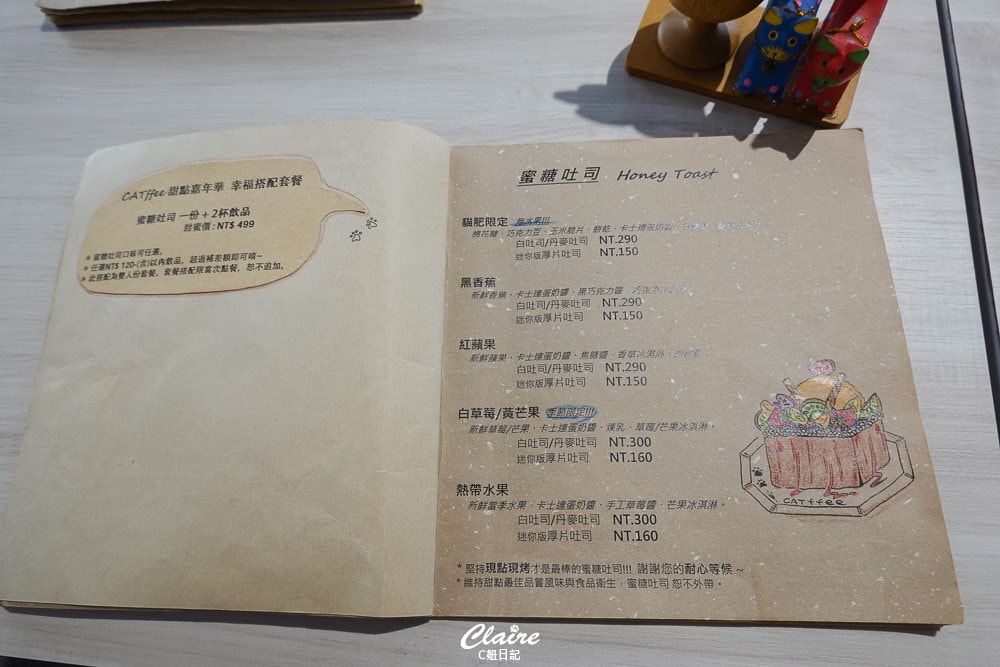 CATffee 甜點嘉年華 幸福搭配套餐
蜜糖吐司 一份 + 2杯飲品
甜蜜價 : NT$ 499
* 蜜糖吐司口味可任選。
* 任選NT$ 120-(含)以內飲品，超過補差額即可唷~
* 此搭配為雙人份套餐，套餐搭配限當次點餐，恕不追加。
蜜糖吐司 Honey Toast
貓肥限定 無水果!!!
棉花糖、巧克力豆、玉米脆片、餅乾、卡士達蛋奶醬、
白吐司/丹麥吐司 NT.290
迷你版厚片吐司 NT.150
黑香蕉
新鮮香蕉、卡士達蛋奶醬、黑巧克力醬、
白吐司/丹麥吐司 NT.290
迷你版厚片吐司 NT.150
紅蘋果
新鮮蘋果、卡士達蛋奶醬、焦糖醬、香草冰淇淋、
白吐司/丹麥吐司 NT.290
迷你版厚片吐司 NT.150
白草莓/黃芒果 季節限定!!!
新鮮草莓/芒果、卡士達蛋奶醬、煉乳、草莓/芒果冰淇淋。
白吐司/丹麥吐司 NT.300
迷你版厚片吐司 NT.160
熱帶水果
新鮮當季水果、卡士達蛋奶醬、手工草莓醬、芒果冰淇淋。
白吐司/丹麥吐司 NT.300
迷你版厚片吐司 NT.160
* 堅持現點現烤才是最棒的蜜糖吐司!!! 謝謝您的耐心等候 ~
* 維持甜點最佳品嘗風味與食品衛生，蜜糖吐司 恕不外帶。
CATffee
Claire
C妞日記